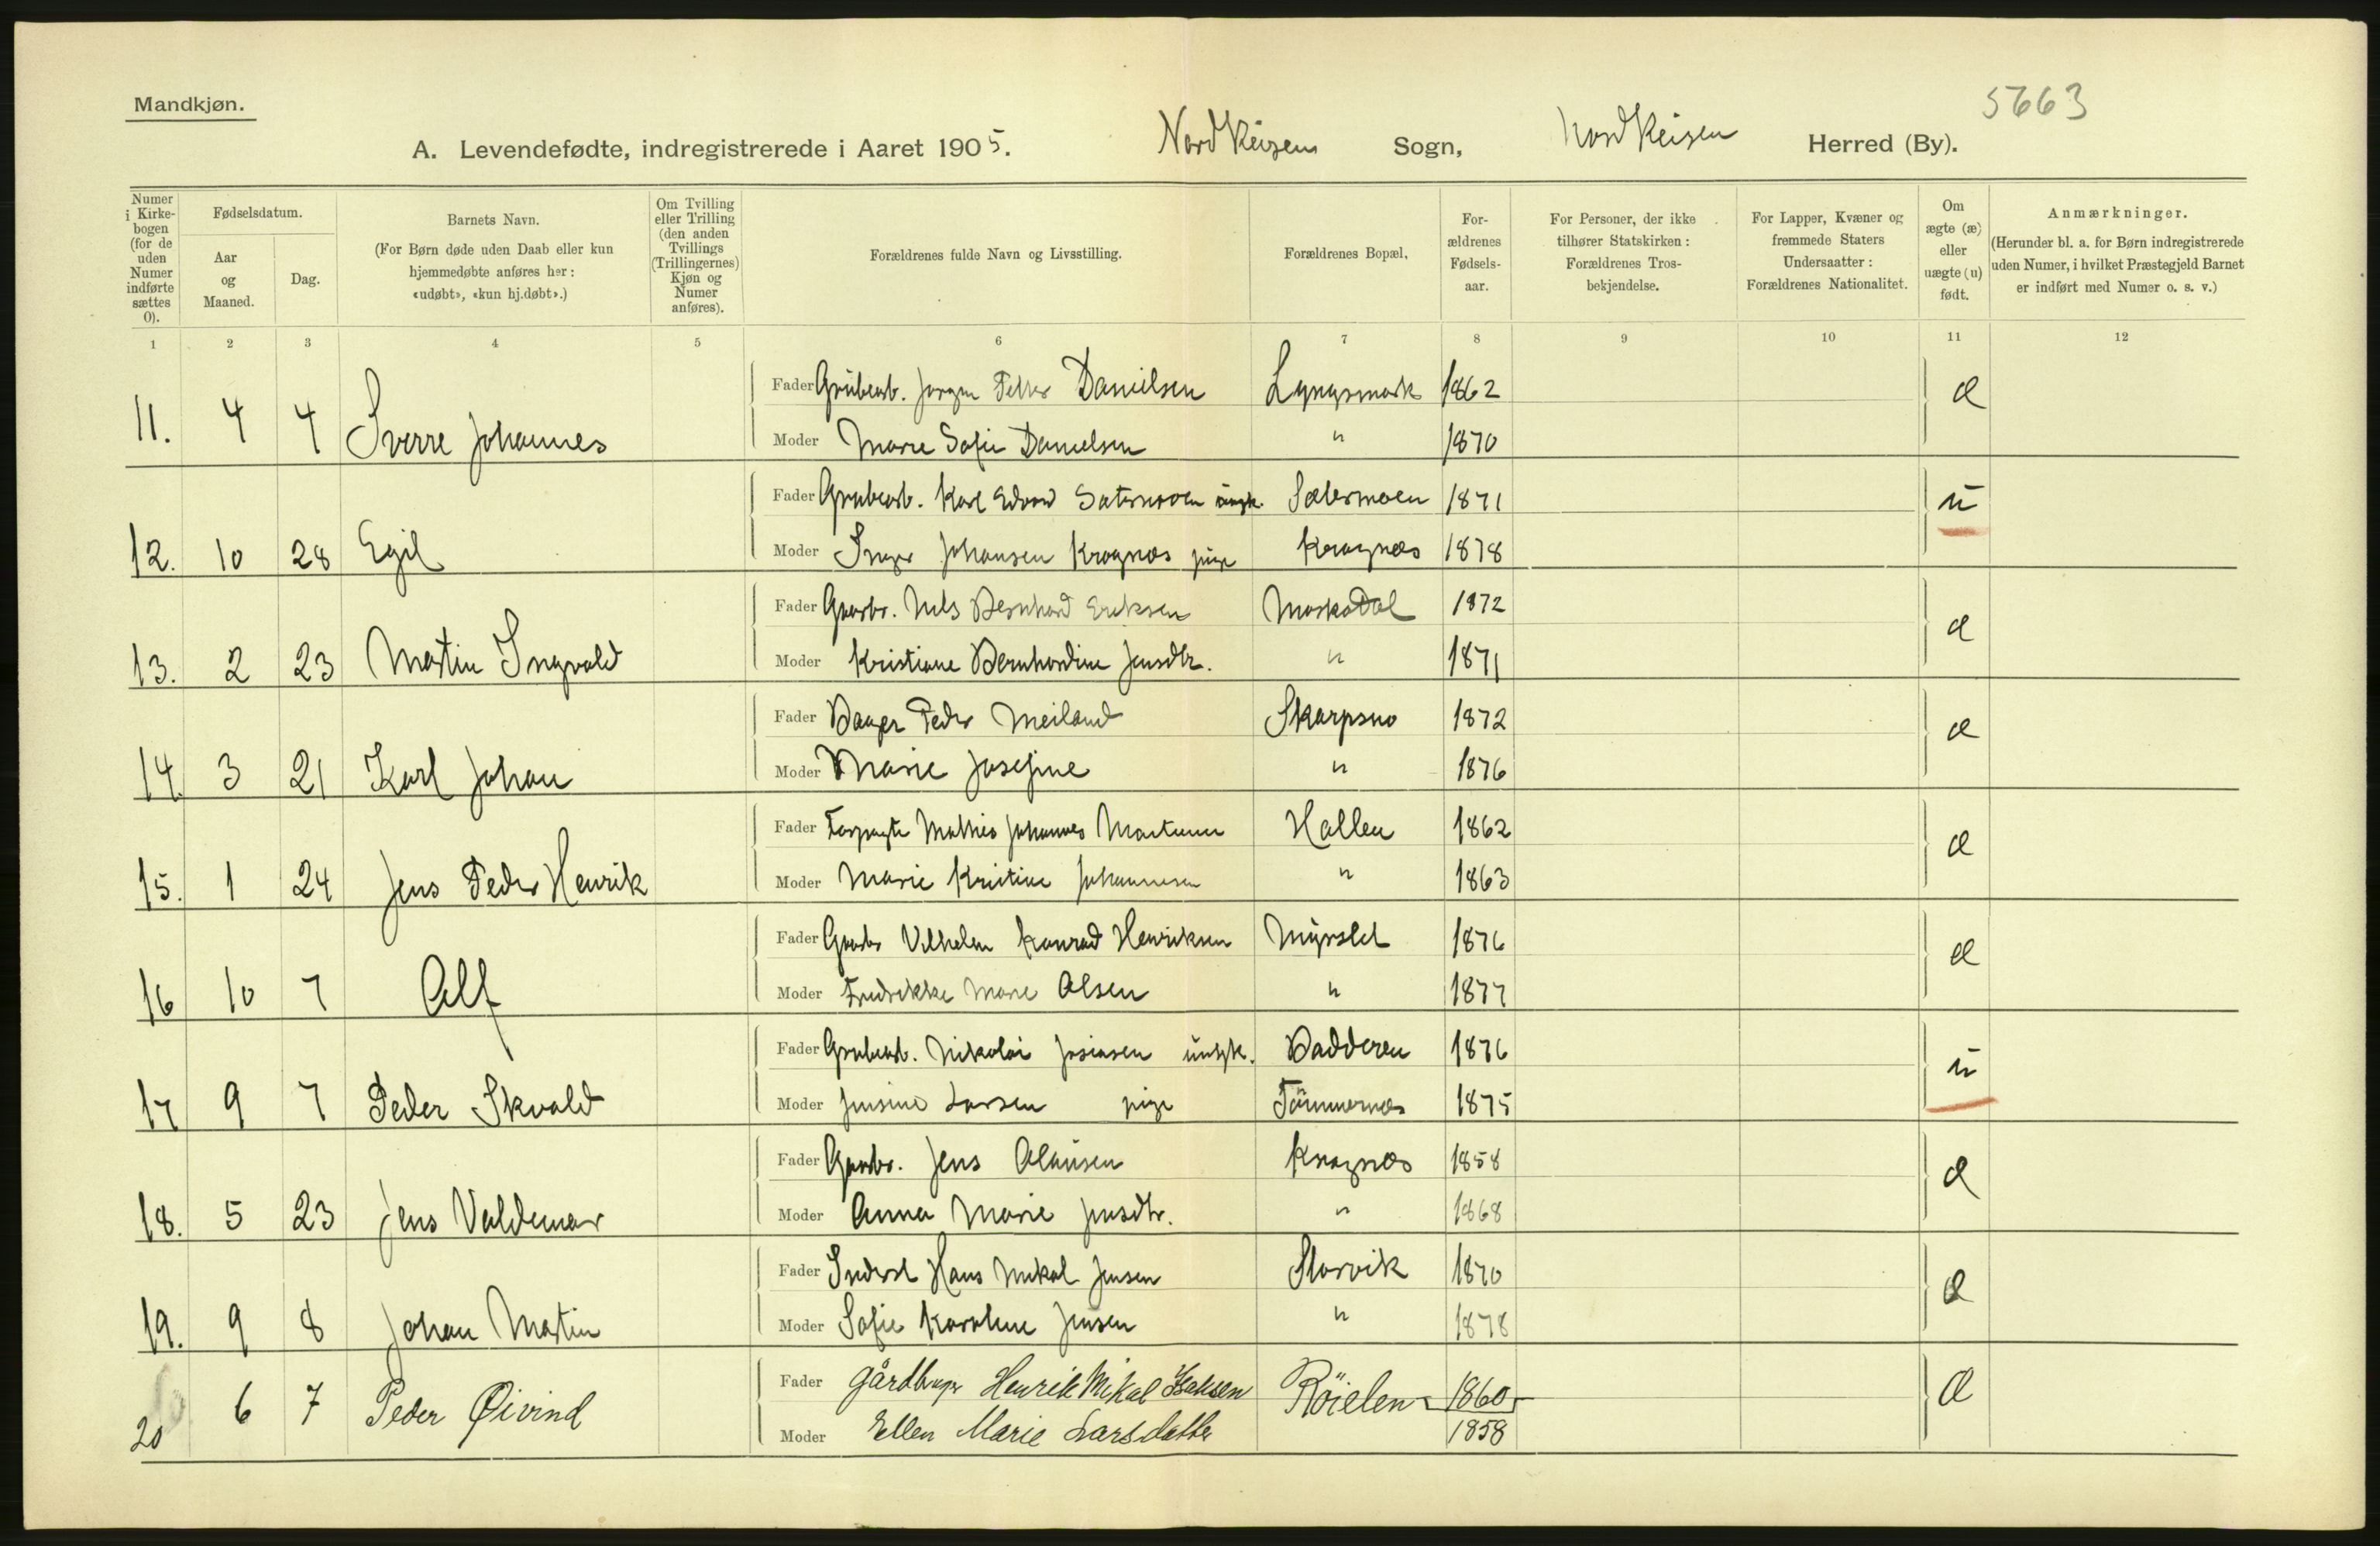 Mandkjøn.
5663
A. Levendefødte, indregistrerede i Aaret 1905. Nordreisen Sogn, Nordreisen Herred (By).
Numer i Kirkebogen (for de uden Numer indførte sættes 0).
Fødselsdatum.
Aar og Maaned.
Dag.
Barnets Navn.
(For Børn døde uden Daab eller kun hjemmedøbte anføres her: «udøbt», «kun hj.døbt».)
Om Tvilling eller Trilling (den anden Tvillings (Trillingernes) Kjøn og Numer anføres).
Forældrenes fulde Navn og Livsstilling.
Forældrenes Bopæl.
Forældrenes Fødselsaar.
For Personer, der ikke tilhører Statskirken: Forældrenes Trosbekjendelse.
For Lapper, Kvæner og fremmede Staters Undersaatter: Forældrenes Nationalitet.
Om ægte (æ) eller uægte (u) født.
Anmærkninger.
(Herunder bl. a. for Børn indregistrerede uden Numer, i hvilket Præstegjeld Barnet er indført med Numer o. s. v.)
1 2 3 4 5 6 7 8 9 10 11 12
Fader Grubearb. Jørgen Peder Danielsen Lyngsmark 1862 æ
11. 4 4 Sverre Johannes Moder Marie Sofie Danielsen " 1870
Fader Grubearb. Karl Edvard Sætermoen ungk. Sætermoen 1871 u
12. 10 28 Egil Moder Inger Johansen Kragnæs pige Kragnæs 1878
Fader Gaardbr. Nils Bernhard Eriksen Moskodal 1872 æ
13. 2 23 Martin Ingvald Moder Kristiane Bernhardine Jensdtr. " 1871
Fader Bager Peder Meiland Skarpsno 1872 æ
14. 3 21 Karl Johan Moder Marie Josefine " 1876
Fader Mathis Johannes Hallen 1862 æ
15. 1 24 Jens Peder Henrik Moder Marie Kristine Johannesen " 1863
Fader Gaardbr Vilhelm Konrad Henriksen Myrslet 1876 æ
16 10 7 Alf Moder Fredrikke Marie Olsen " 1877
Fader Grubearb. Nikolai Josiasen ungk. Badderen 1876 u
17 9 7 Peder Skvald Moder Jensine Larsen pige Tömmernæs 1875
Fader Gaardbr. Jens Olausen Kragnæs 1858 æ
18. 5 23 Jens Valdemar Moder Anna Marie Jensdtr. " 1868
Fader Inderst Hans Mikal Jensen Storvik 1870 æ
19. 9 8 Johan Martin Moder Sofie Karoline Jensen " 1878
Fader Gårdbruger Henrik Mikal Isaksen Röielen 1860 æ
20 6 7 Peder Øivind Moder Ellen Marie Larsdatter 1858